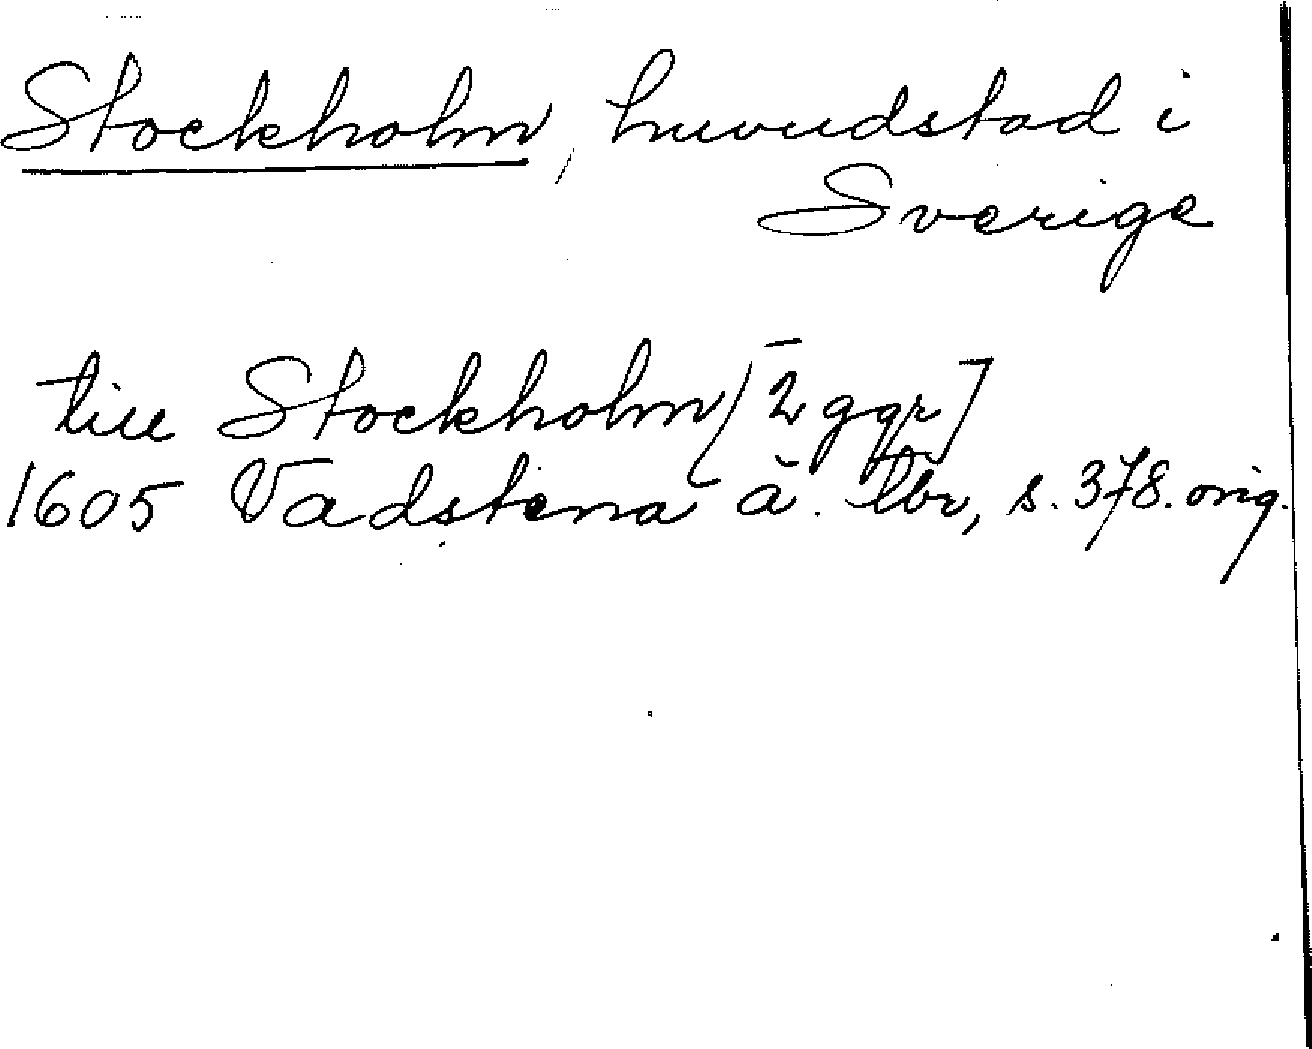 Stockholm, huvudstad i
Sverige
till Stockholm [2 ggr]
1605 Vadstena ä. tbr, s. 378. orig.